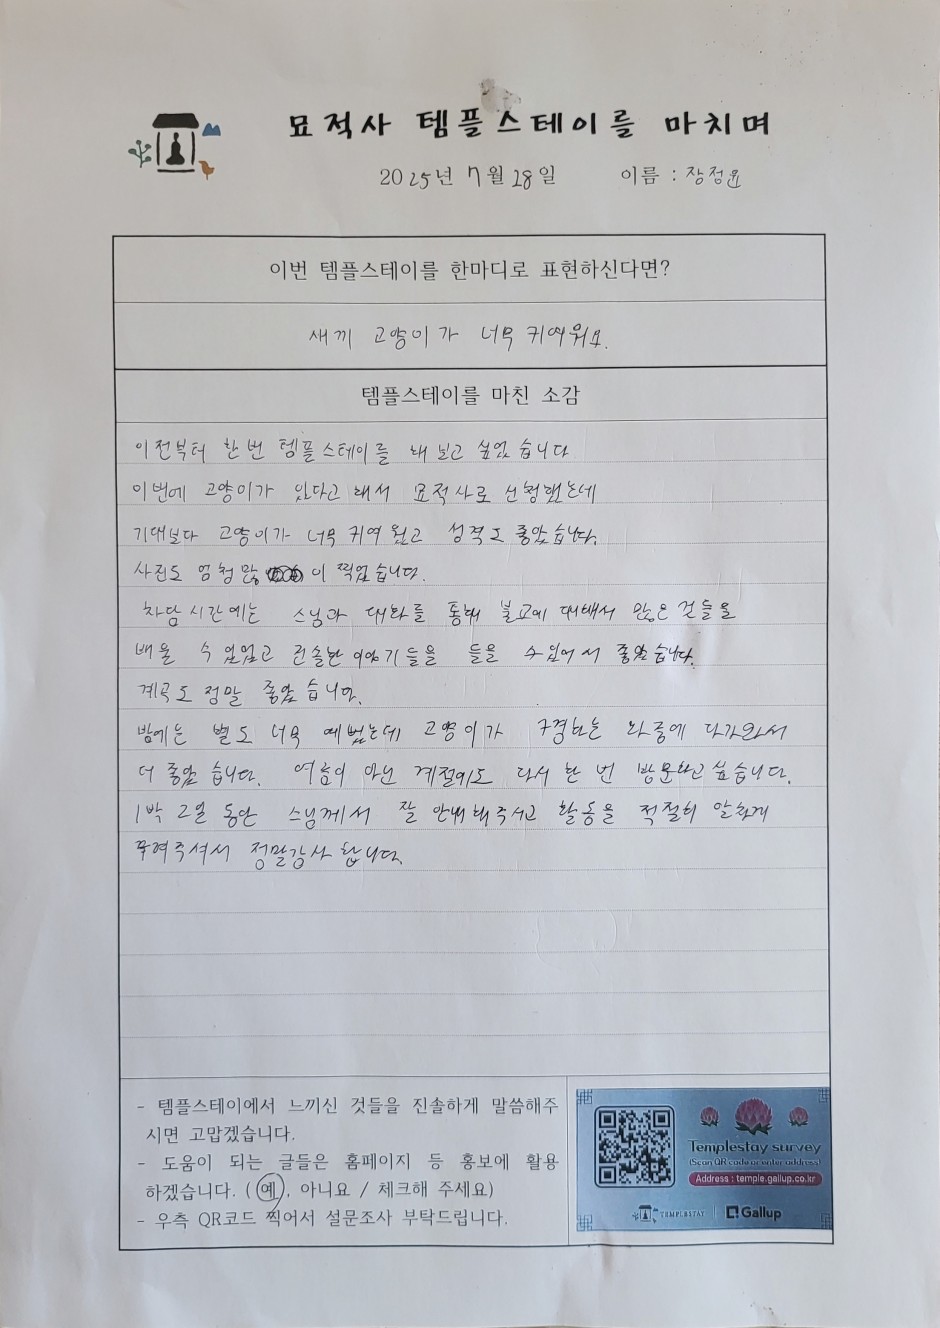 묘적사 템플스테이를 마치며
2025년 7월 28일 이름 : 장정윤
이번 템플스테이를 한마디로 표현하신다면?
새끼 고양이가 너무 귀여워요.
템플스테이를 마친 소감
이전부터 한 번 템플스테이를 해 보고 싶었습니다
이번에 고양이가 있다고 해서 묘적사로 신청했는데
기대보다 고양이가 너무 귀여웠고 성격도 좋았습니다.
사진도 엄청 많이 찍었습니다.
차담 시간에는 스님과 대화를 통해 불교에 대해서 많은 것들을
배울 수 있었고 진솔한 이야기들을 들을 수 있어서 좋았습니다.
계곡도 정말 좋았습니다.
밤에는 별도 너무 예뻤는데 고양이가 구경하는 와중에 다가와서
더 좋았습니다. 여름이 아닌 계절에도 다시 한 번 방문하고 싶습니다.
1박 2일 동안 스님께서 잘 안내해주시고 활동을 적절히 알차게
꾸려주셔서 정말감사합니다.
- 템플스테이에서 느끼신 것들을 진솔하게 말씀해주
시면 고맙겠습니다.
- 도움이 되는 글들은 홈페이지 등 홍보에 활용
하겠습니다. ( 예, 아니요 / 체크해 주세요)
- 우측 QR코드 찍어서 설문조사 부탁드립니다.
Templestay survey
(Scan QR code or enter address)
Address : temple.gallup.co.kr
TEMPLESTAY Gallup